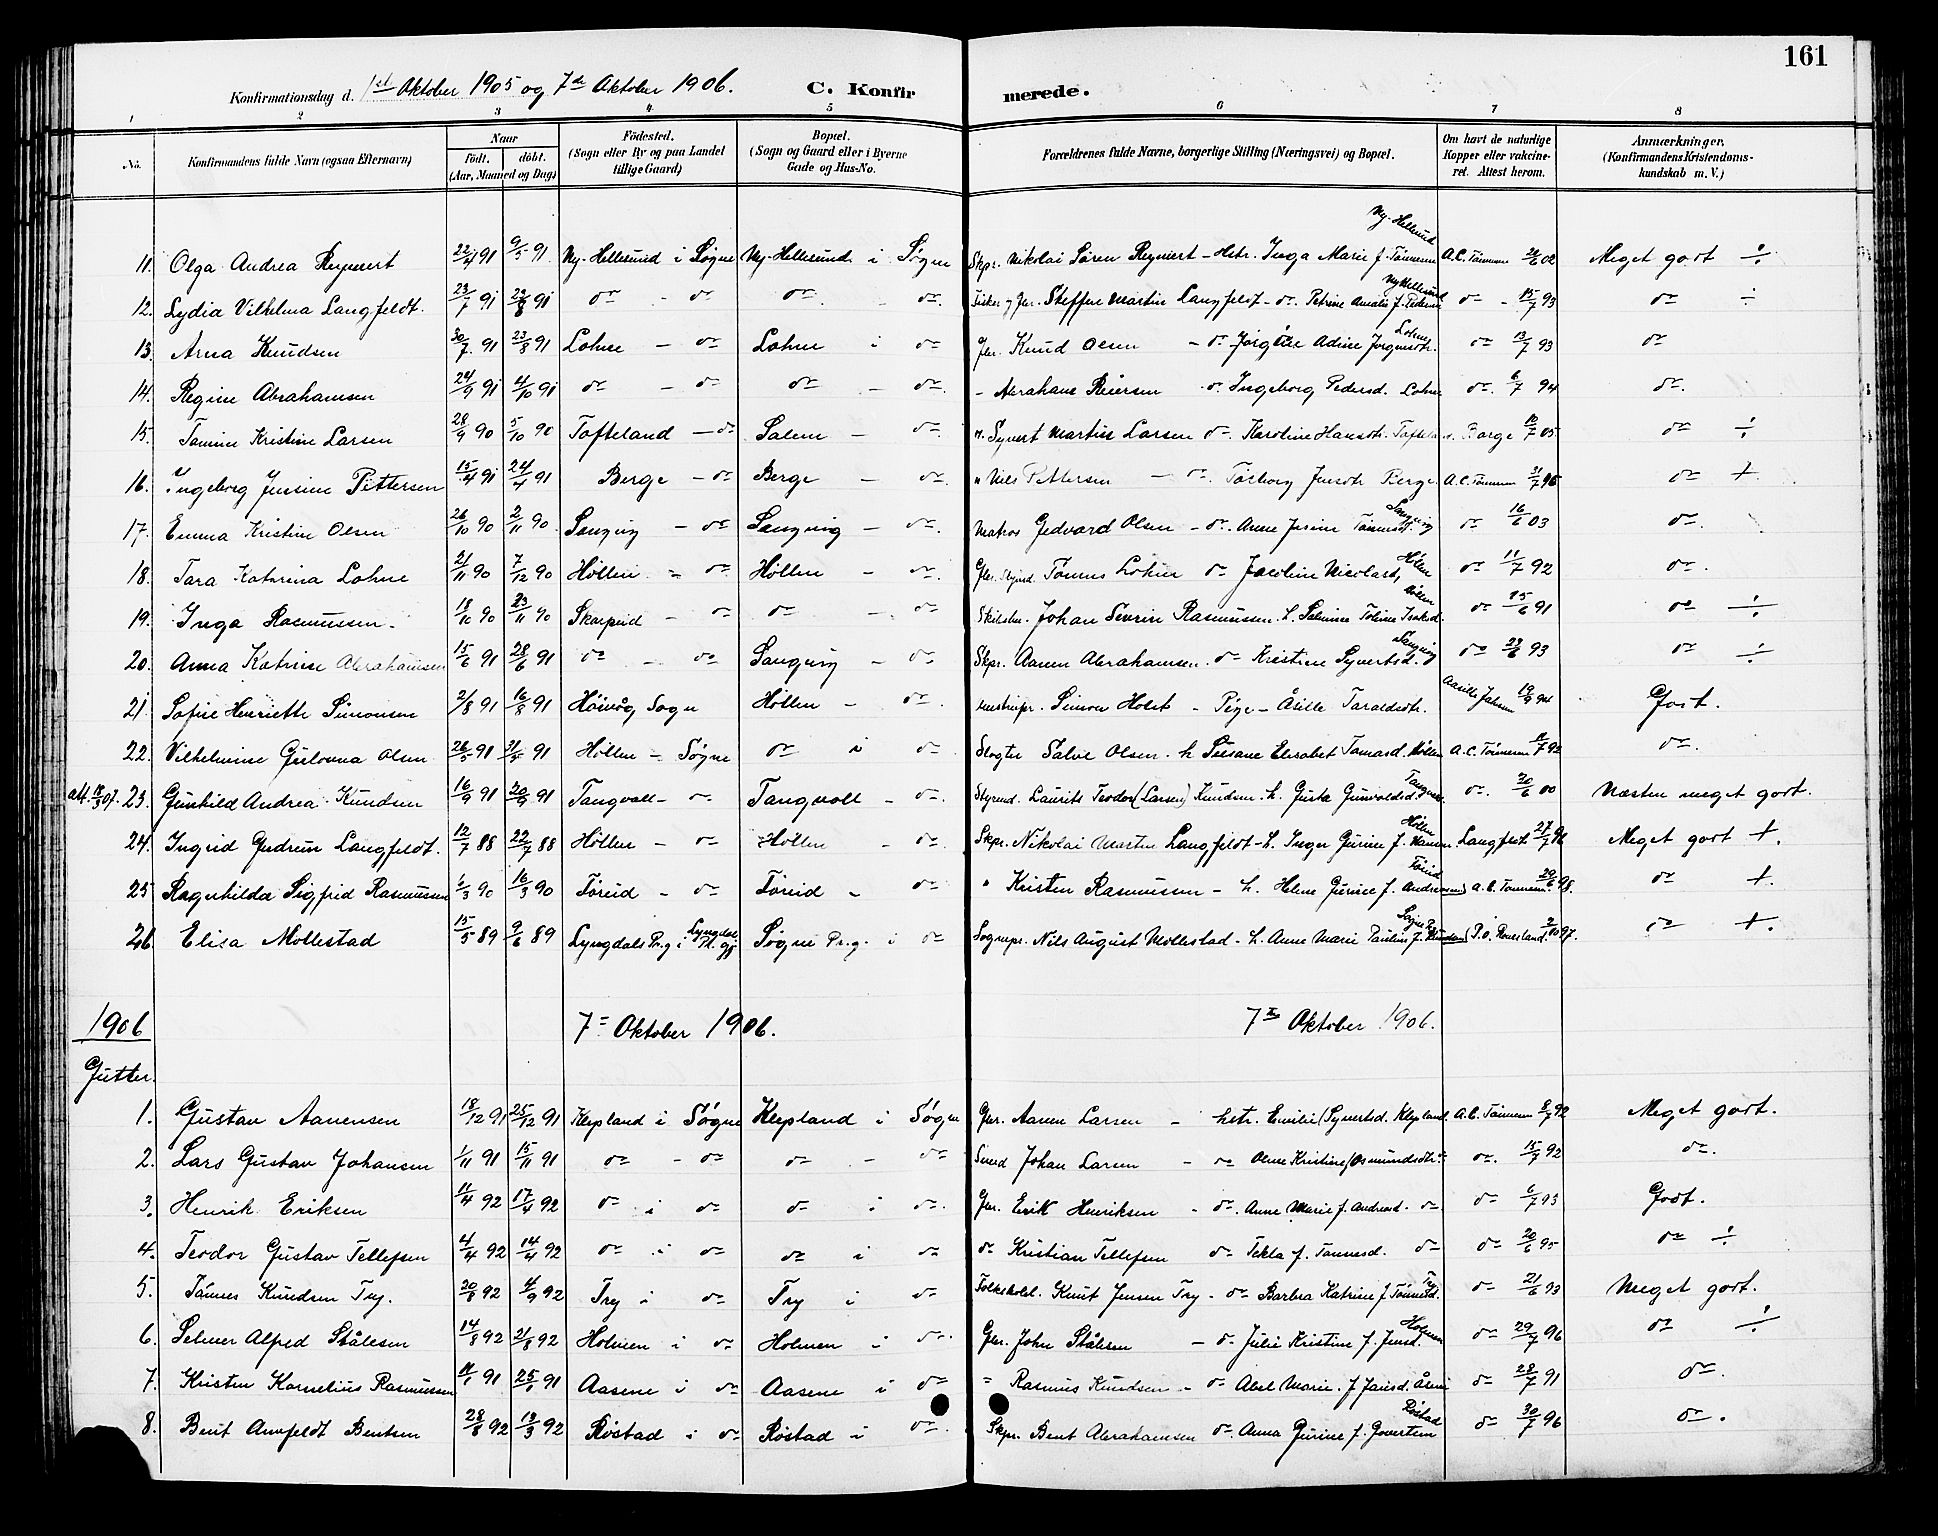 161
Konfirmationsdag d. 1st Oktober 1905 og 7de Oktober 1906. C. Konfirmerede.
1 2 3 4 5 6 7 8
No. Konfirmandens fulde Navn (ogsaa Efternavn) Naar födt. döbt. (Aar, Maaned og Dag) Födested. (Sogn eller By og paa Landet tillige Gaard) Bopæl. (Sogn og Gaard eller i Byerne Gade og Hus-No. Forældrenes fulde Navne, borgerlige Stilling (Næringsvei) og Bopæl. Om havt de naturlige Kopper eller vaccineret. Attest herom. Anmærkninger. (Konfirmandens Kristendomskundskab m. V.)
11. Olga Andrea Reynert 22/4 91 9/5 91 Ny-Hellesund i Søgne Ny-Hellesund i Søgne Skpr. Nikolai Sören Reynert - Hstr. Inga Marie f. Tönnesen Ny-Hellesund A.C. Tönnesen 02 Meget godt ÷
12. Lydia Vilhelma Langfeldt. 23/7 91 23/8 91 do - do do - do. Fisker og Gbr. Steffen Martin Langfeldt - do. Petrine Amalie f. Pedersen Ny Hellesund do - 15/7 93 do ÷
13. Arna Knudsen 30/7. 91 23/8 91 Lohne - do Lohne i do Gbr. Knud Olsen - do Jörgine Adine Jörgensdtr. Lohne do 13/7 93 do
14. Regine Abrahamsen 24/9 91 4/10 91 do - do do - do. - Abraham Reiersen do. Ingeborg Pedersd. Lohne do. 6/7 94 do.
15. Tomine Kristine Larsen 28/9 90 5/10 90 Tofteland - do Salem - do. " Syvert Martin Larsen do. Karoline Hansdtr. Tofteland. Borge 05 do ÷
16. Ingeborg Jensine Pettersen 15/4 91 24/4 91 Berge - do Berge - do. " Nils Pettersen - do. Torborg Jensdtr Berge A.C. Tönnesen 31/7 95 do +
17. Emma Kristine Olsen 26/10 90 2/11 90. Sangvig - do Sangvig - do. Matros Gedvard Olsen - do. Anne Jesine Tönnesd. Sangvig do 16/6 03 do.
18. Tara Katrina Lohne 21/11 90 7/12 90 Höllen - do Höllen - do. Gbr. Styrmd. Tönnes Lohne do Jacobine Nicolaisd. Hölen do 11/7 92 do.
19. Inga Rasmussen. 18/10 90 23/11 90 Skarpeid - do do - do Johan Severin Rasmussen. h. Salmine Toline Isaksd. Höllen do 25/6 91 do ÷
20. Anna Katrine Abrahamsen 15/6 91 28/6 91 do - do Sangvig - do Skpr. Aanen Abrahamsen. do Kristine Syvertsd. Sangvig do 23/6 93 do ÷
21. Sofie Henriette Simonsen 2/8 91 16/8 91 Höivåg Sogn Höllen - do Simon Holst - Pige - Åsille Taraldsdtr. 19/9 94 Godt.
22. Vilhelmine Gulovna Olsen 26/5 91 31/5 91 Höllen - Søgne do i do Slagter Salve Olsen. h Susane Elisabet Tomasd. Höllen A.C. Tönnesen 92 do.
att. 07. 23. Gunhild Andrea Knudsen 16/9 91 20/9 91 Tangvall - do Tangvall - do. Styrmd. Laurits Teodor (Larsen) Knudsen. h. Gusta Gunvaldsd. Tangvall do. 20/6 00 Næsten meget godt.
24. Ingrid Gudrun Langfeldt. 12/7 88 22/7 88 Höllen - do Höllen - do. Skpr. Nikolai Martin Langfeldt - h. Inger Gurine f. Hansen Höllen Langfeldt 27/7 96 Meget godt +.
25 Ragnhilda Sigfrid Rasmussen 1/3 90 16/3 90 Töreid - do Töreid - do " Kristen Rasmussen - h. Helene Gurine f. Andreassen Töreid A.C. Tönnesen. 20/6 98. do +.
26 Elisa Mollestad 15/5 89 9/6 89 Lyngdals Pr.g i Lyngdal Søgne Pr.g. i do Sognepr. Nils August Mollestad - h. Anne Marie Pauline f. Knudsen Søgne P.O. Rousland 97. do +.
1906 7de Oktober 1906. 7de Oktober 1906.
Gutter.
1. Gustav Aanensen 18/12 91 25/12 91 Klepland i Søgne Klepland i Søgne Gbr. Aanen Larsen - hstr. Emilie Syvertsd. Klepland A.C. Tönnesen 8/7 92 Meget godt.
2. Lars Gustav Johansen 1/11 91 15/11 91 do - do do - do Smed Johan Larsen - do Oline Kristine Osmundsdtr. do. 15/7 92 do.
3. Henrik Eriksen 11/4 92 17/4 92 do i do do i do. Gbr. Erik Henriksen - do. Anne Marie f. Andreasd. do do 6/7 93 Godt.
4. Teodor Gustav Tellefsen 4/4 92 14/4 92 do i do do i do do Kristian Tellefsen do Tekla f. Tönnesd. do do 20/6 95 do ÷
5. Tönnes Knudsen Try. 20/8 92 4/9 92 Try i do Try i do Folkeskolel. Knut Jensen Try - do Barbra Katrine f Tönnesd. Try do 21/6 93 Meget godt.
6. Selmer Alfred Stålesen 14/8 92 21/8 92 Holmen i do Holmen i do Gbr. John Stålesen - do Julie Kristine f. Jensd. Holmen do 29/7 96 do ÷
7. Kristen Kornelius Rasmussen 91 25/1 91 Aasene i do Aasene i do - Rasmus Knudsen - do Abel Marie f Jansd. Åsene do 28/7 91 do.
8. Bent Amfeldt Bentsen 28/8 92 13/3 92 Röstad i do Röstad i do. Skpr. Bent Abrahamsen do. Anna Gurine f. Govertsen Röstad do 30/7 96 do.